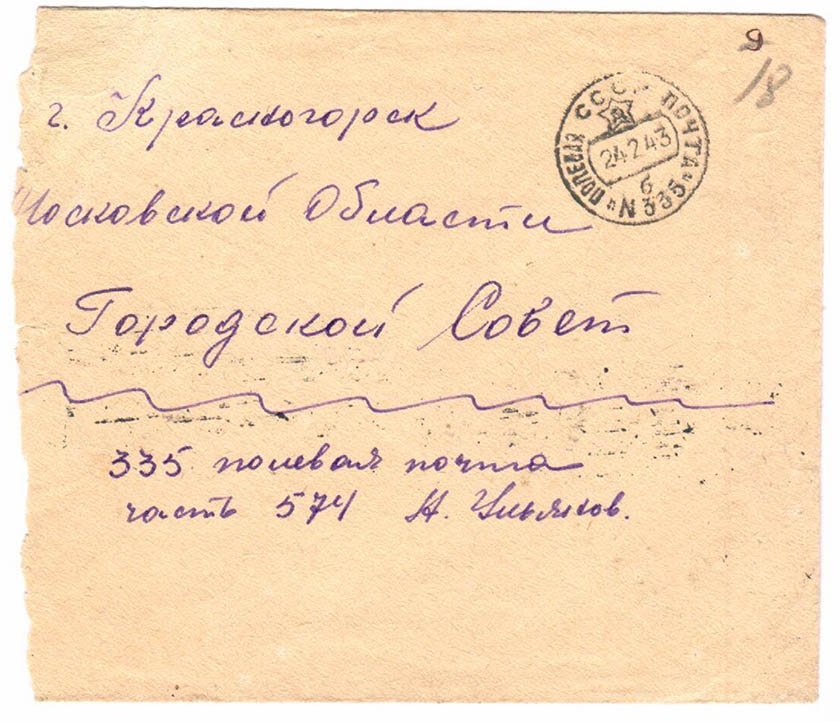 9
18
СССР ПОЧТА
24 2 43
б
"ПОЛЕВАЯ N 335"
г. Красногорск
Московской Области
Городской Совет
335 полевая почта
часть 574 Н.